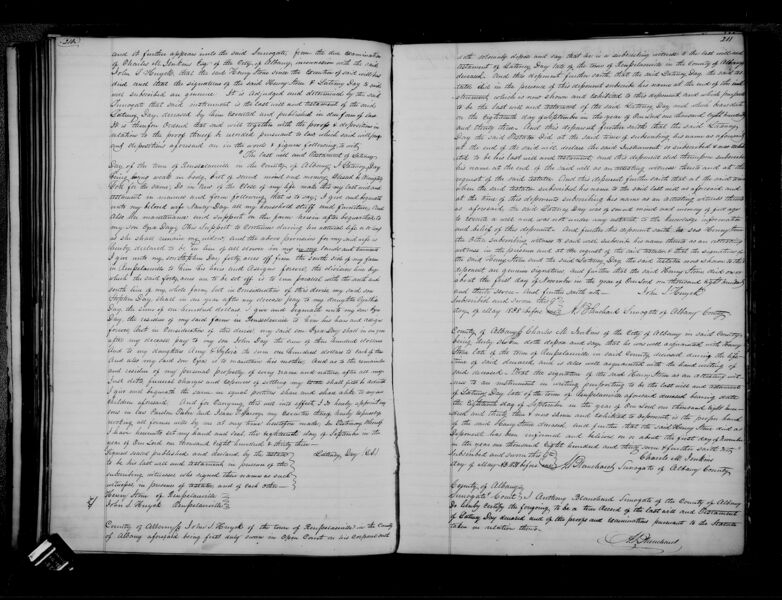 210
and it further appears unto the said Surrogate, from the due examination
of Charles M. Jenkins Esqr of the City of Albany, in connexion with the said
John S. Huyck, that the said Henry Stem since the execution of said will has
died and that the signatures of the said Henry Stem & Lattency Day to said
will subscribed are genuine. It is adjudged and determined by the said
Surrogate that said instrument is the last will and testament of the said
Day deceased by him executed and published in due form of law
It is therefore Ordered that said will together with the proofs & depositions in
relation to the proof thereof be recorded pursuant to law which said will proofs
and depositions aforesaid are in the words & figures following, to wit,
"The last will and Testament of
Day of the town of Rensselaerville in the County of Albany, I Day
being weak in body, but of sound mind and memory Blessed be Almighty
God for the same; Do in view of the close of my life make this my last will and
testament in manner and form following, that is to say; I give and bequeath
unto my beloved wife Day all my household stuff and furniture, And
Also the maintenance and support on the farm herein after bequeathed to
my son Ezra Day, This Support to Continue during her natural life or as long
as she shall remain my widow, and the above provision for my said wife is
hereby declared to be in lieu of all dower in my lands and tenements
I give unto my son Stephen Day forty acres off from the south side of my farm
in Rensselaerville to him his heirs and Assigns forever, the division line by
which the said forty acres are to be set off is to run parallel with the said
south line of my whole farm, but in Consideration of this devise my said son
Stephen Day, shall in one year after my decease pay to my daughter Cynthia
Day, the sum of one hundred dollars. I give and bequeath unto my son Ezra
Day, the residue of my said farm in Rensselaerville to him his heirs and assigns
forever, but in Consideration of this devise, my said son Ezra Day shall in one year
after my decease pay to my son John Day the sum of five hundred dollars
And to my daughters the sum one hundred dollars to each of them
And also my said son Ezra is to maintain his mother, And as to the remainder
and residue of my personal property of every name and nature after all my
Just debts funeral charges and expenses of settling my estate shall first be deducted
I give and bequeath the same in equal portions share and share alike to my said
children aforesaid. And for Carrying this will into effect I do hereby appoint my
sons in law and Isaac my Executors thereof hereby expressly
revoking all former wills by me at any time heretofore made. In testimony Whereof
I have hereunto set my hand and seal, this eighteenth day of September in the
year of Our Lord one thousand eight hundred & thirty three
Signed sealed published and declared by the testator
to be his last will and testament in presence of the
subscribing witnesses who signed their names as such
witnesses in presence of testator and of each other
Day (LS)
Henry Stem of Rensselaerville
John S. Huyck Rensselaerville
County of Albany SS John S. Huyck of the town of Rensselaerville in the County
of Albany aforesaid being first duly sworn in Open Court on his corporal oath
211
oath solemnly deposes and say that he is a subscribing witness to the last will and
testament of Day late of the town of Rensselaerville in the County of Albany
deceased. And this deponent further saith that the said Day the said testator
did in the presence of this deponent subscribe his name at the end of the said
instrument which is now shown and exhibited to this deponent and which purports
to be the last will and testament of the said Day and which bears date
on the eighteenth day of September in the year of Our Lord one thousand eight hundred
and thirty three. And this deponent further saith that the said
Day the said Testator did at the said time of subscribing his name as aforesaid
at the end of the said will declare the said Instrument so subscribed & now exhibited
to be his last will and testament and this deponent did thereupon subscribe
his name at the end of the said will as an attesting witness thereto and at the
request of the said testator. And this deponent further saith that at the said time
when the said testator subscribed his name to the said last will as aforesaid and
at the time of this deponents subscribing his name as an attesting witness thereto
as aforesaid the said Day was of sound mind and memory of full age
to execute a will and was not under any restraint to the knowledge information
and belief of this deponent. And further this deponent saith he saw Henry Stem
the other subscribing witness to said will subscribe his name thereto as an attesting
witness in the presence and at the request of the said testator that the signatures of
the said Henry Stem and the said Day, the said testator now shown to this
deponent are genuine signatures, and further that the said Henry Stem died on or
about the first day of November in the year of Our Lord one thousand eight hundred
and thirty seven and further saith not
John S. Huyck
Subscribed and sworn this 9th
day of May 1838 before me
A. Blanchard Surrogate of Albany County
County of Albany SS Charles M. Jenkins of the City of Albany in said County
being duly sworn doth depose and say, that he was well acquainted with Henry
Stem late of the town of Rensselaerville in said County deceased during the life
time of said deceased and is also well acquainted with the hand writing of
said deceased. That the signature of the said Henry Stem as an attesting witness
to an instrument in writing purporting to be the last will and testament
of Day late of the town of Rensselaerville aforesaid deceased bearing date
the Eighteenth day of September in the year of Our Lord one thousand eight hundred
and thirty three & now shown and exhibited to deponent is the proper hand
of the said Henry Stem deceased, and further that the said Henry Stem died as
deponent has been informed and believes on or about the first day of November
in the year one thousand eight hundred and thirty seven & further saith not
Subscribed and sworn this 9th
Charles M. Jenkins
day of May A.D. 1838 before me
A. Blanchard Surrogate of Albany County
County of Albany
Surrogate Court } I Anthony Blanchard Surrogate of the County of Albany
do hereby certify the foregoing, to be a true record of the last will and Testament
of Day deceased and of the proofs and examinations pursuant to the Statute
taken in relation thereto
A. Blanchard